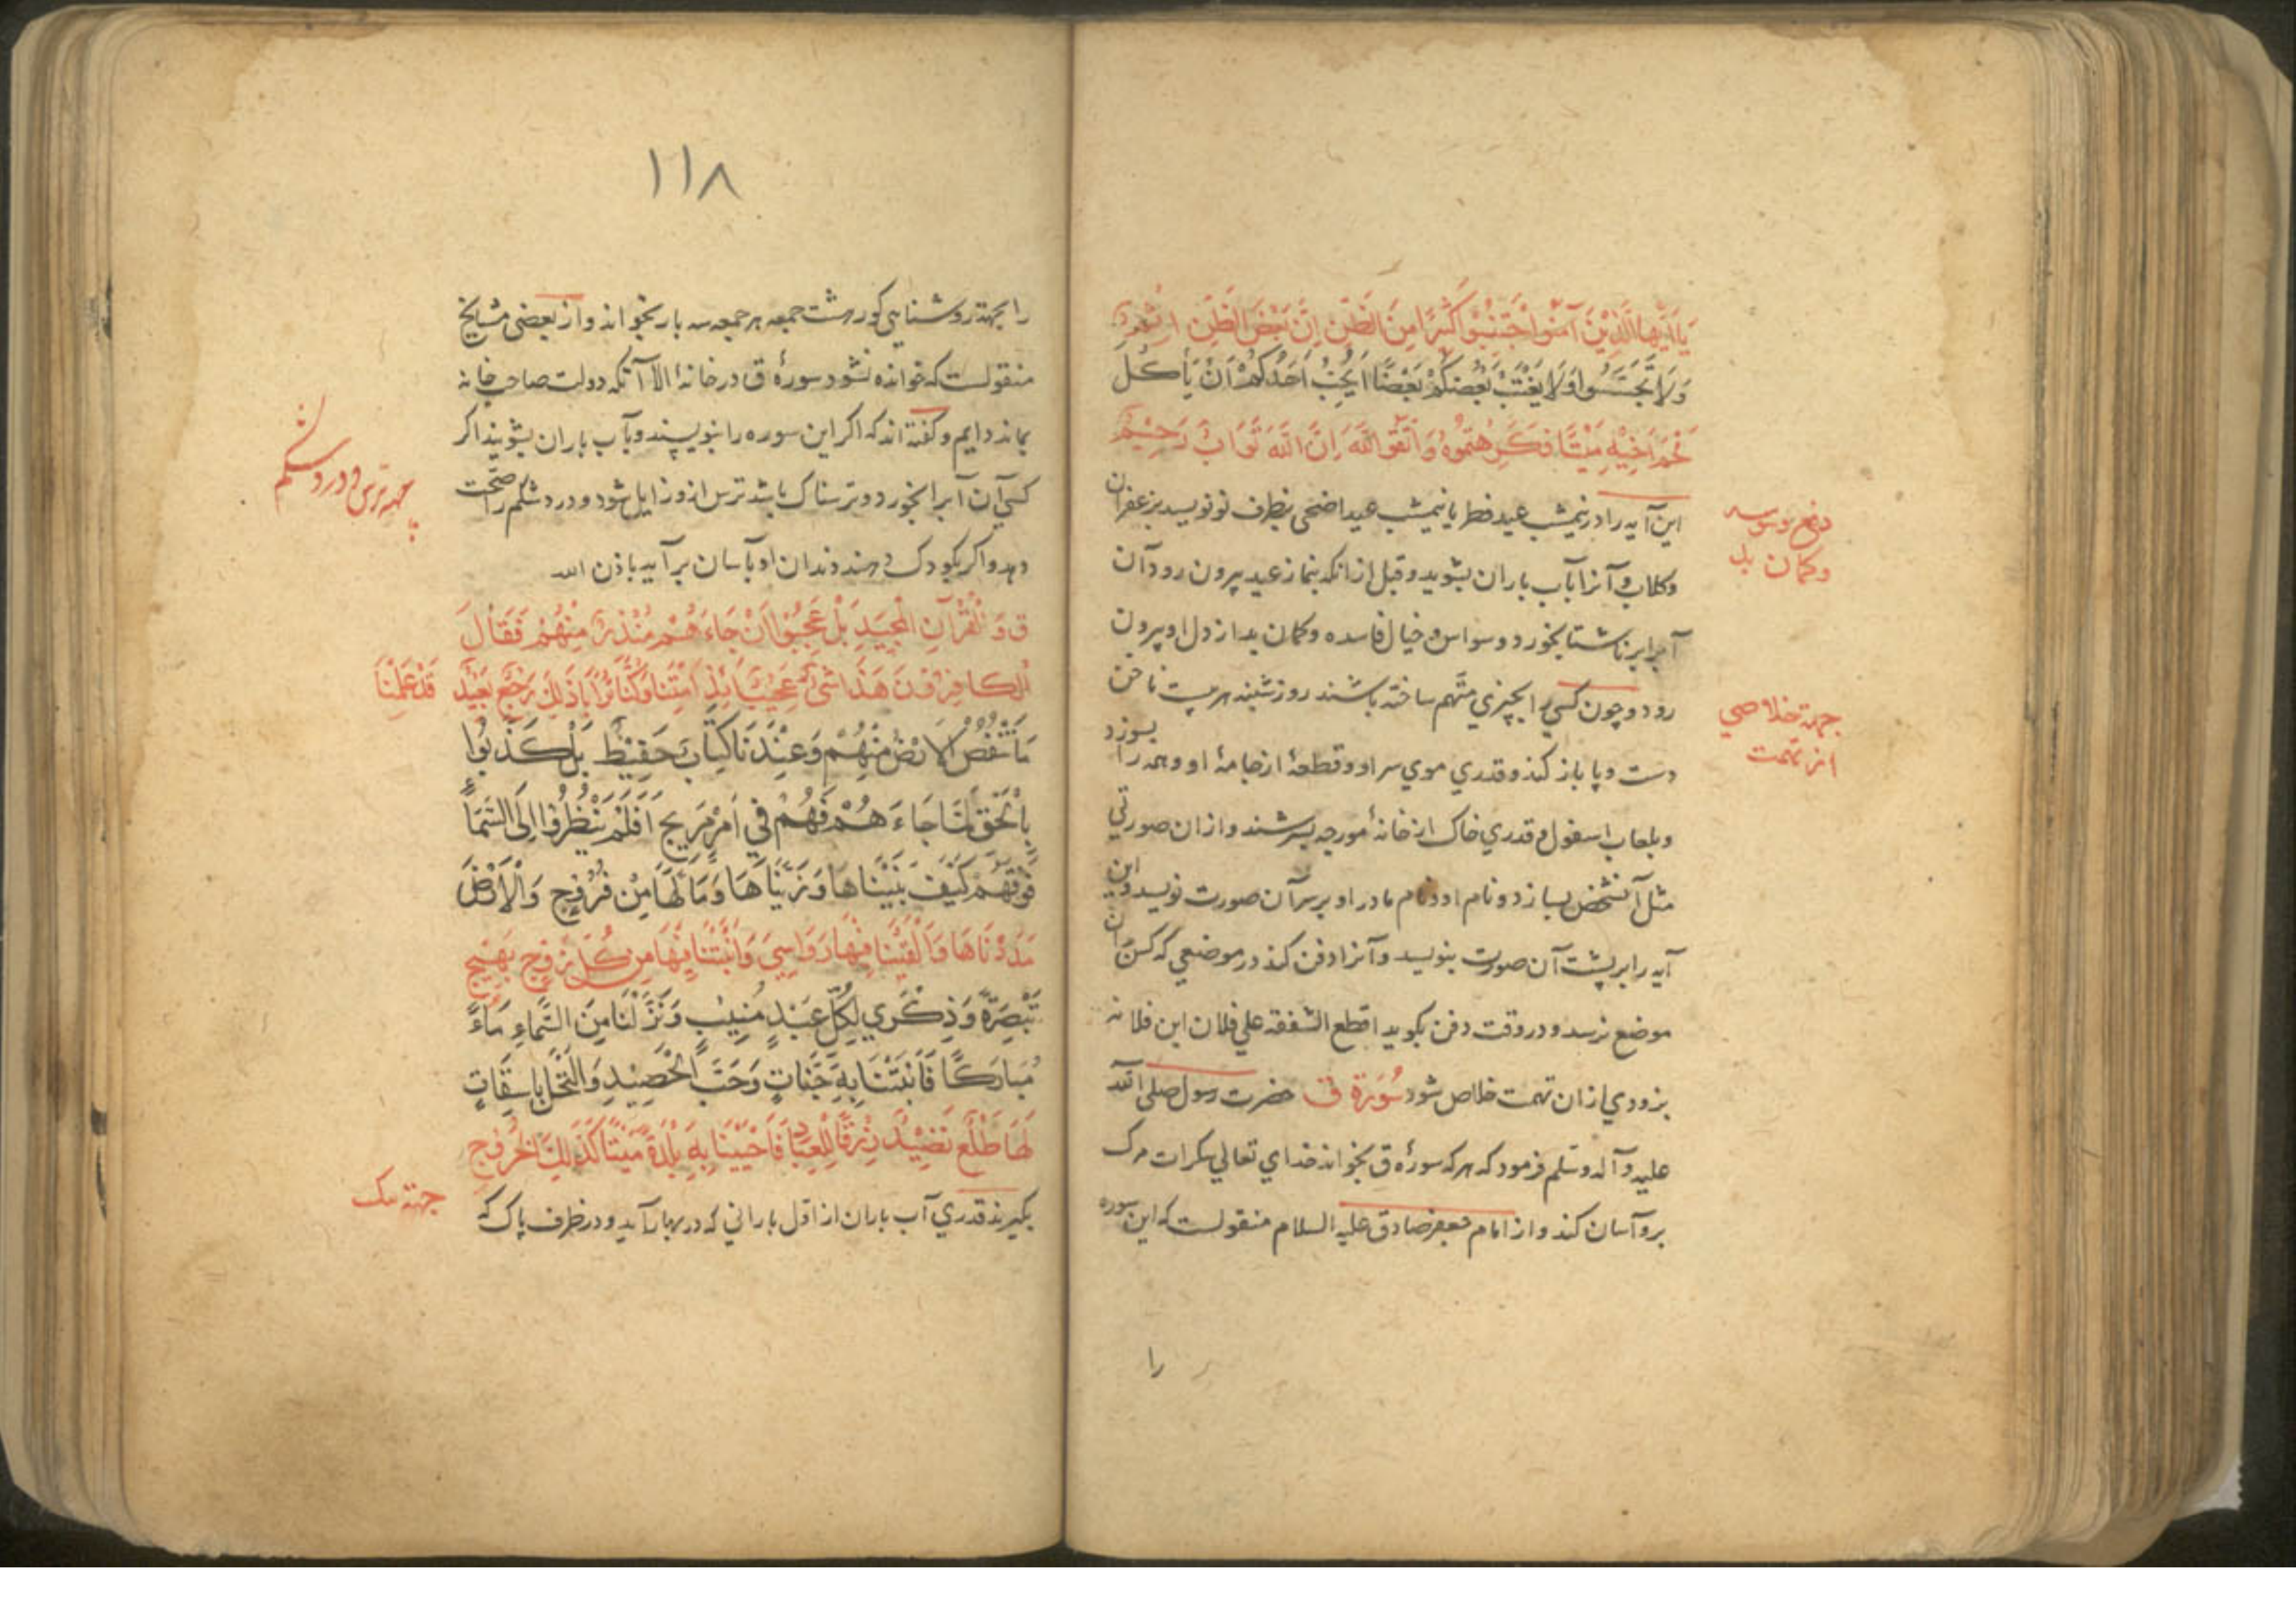 يَا اَيُّهَا الَّذِيْنَ آمَنُوا اجْتَنِبُوا كَثِيرًا مِنَ الظَّنِّ اِنَّ بَعْضَ الظَّنِّ اِثْمٌ
وَلَا تَجَسَّسُوا وَلَا يَغْتَبْ بَعْضُكُمْ بَعْضًا اَيُحِبُّ اَحَدُكُمْ اَنْ يَأْكُلَ
لَحْمَ اَخِيْهِ مَيْتًا فَكَرِهْتُمُوهُ وَاتَّقُوا اللَّهَ اِنَّ اللَّهَ تَوَّابٌ رَحِيْمٌ
این آیه را در نیمشب عید فطر یا نیمشب عید اضحی بظرف نو نویسد بزعفران
دفع وسوسه
وکمان بد
وکلاب و آنرا بآب باران بشوید و قبل از انکه بنماز عید بیرون رود آن
آبرا بر ناشتا بخورد وسواس و خیال فاسده وکمان بد از دل او بیرون
رود و چون کسي را بچیزي متّهم ساخته باشند روز شنبه هر بیست ناخن
جهة خلاصي
از تهمت
دست و پا باز کند و قدري موي سر او و قطعهٔ از جامهٔ او و همه را بسوزد
و بلعاب اسفول و قدري خاک از خانهٔ مورچه بسرشند و ازان صورتي
مثل آنشخص بسازد و نام او و نام مادر او بر سر آن صورت نویسد و این
آیه را بر پشت آن صورت بنویسد و آنرا دفن کند در موضعي که کس بان
موضع نرسد و در وقت دفن بکوید اقطع الشفقه علي فلان ابن فلانه
بزودي ازان تهمت خلاص شود سُوْرَة ق حضرت رسول صلی الله
علیه و آله وسلم فرمود که هر که سورهٔ ق بخواند خداي تعالي سکرات مرک
بر و آسان کند و از امام جعفر صادق علیه السلام منقولست که این سوره
را
١١٨
را بجهة روشنایي کور هشت جمعه هر جمعه سه بار بخواند و از بعضی مشایخ
منقولست که خوانده نشود سورهٔ ق در خانهٔ الا آنکه دولت صاحب خانه
بماند دایم و کفته اند که اکر این سوره را بنویسند و بآب باران بشویند اکر
جهة ترس و درد شکم
کسي آن آبرا بخورد و ترسناک باشد ترس ازو زایل شود و درد شکم را صحّت
دهد و اکر بکودک دهند دندان او بآسان بر آید باذن الله
ق وَ الْقُرْآنِ الْمَجِيدِ بَلْ عَجِبُوْا اَنْ جَاءَ هُمْ مُنْذِرٌ مِنْهُمْ فَقَالَ
الْكَافِرُوْنَ هَذَا شَيْءٌ عَجِيْبٌ اَئِذَا مِتْنَا وَكُنَّا تُرَابًا ذَلِكَ رَجْعٌ بَعِيْدٌ قَدْ عَلِمْنَا
مَا تَنْقُصُ الْاَرْضُ مِنْهُمْ وَعِنْدَنَا كِتَابٌ حَفِيْظٌ بَلْ كَذَّبُوا
بِالْحَقِّ لَمَّا جَاءَ هُمْ فَهُمْ فِي اَمْرٍ مَرِيجٍ اَفَلَمْ يَنْظُرُوا اِلَى السَّمَاءِ
فَوْقَهُمْ كَيْفَ بَنَيْنَاهَا وَ زَيَّنَّاهَا وَمَا لَهَا مِنْ فُرُوْجٍ وَالْاَرْضَ
مَدَدْنَاهَا وَاَلْقَيْنَا فِيْهَا رَوَاسِيَ وَاَنْبَتْنَا فِيْهَا مِنْ كُلِّ زَوْجٍ بَهِيْجٍ
تَبْصِرَةً وَذِكْرَي لِكُلِّ عَبْدٍ مُنِيْبٍ وَنَزَّلْنَا مِنَ السَّمَاءِ مَاءً
مُبَارَكًا فَاَنْبَتْنَا بِهِ جَنَّاتٍ وَحَبَّ الْحَصِيْدِ وَالنَّخْلَ بَاسِقَاتٍ
لَهَا طَلْعٌ نَضِيْدٌ رِزْقًا لِلْعِبَادِ فَاَحْيَيْنَا بِهِ بَلْدَةً مَيْتًا كَذَلِكَ الْخُرُوْجُ
بکیرند قدري آب باران از اوّل باراني که در بهار آید و در ظرف پاک که
جهة